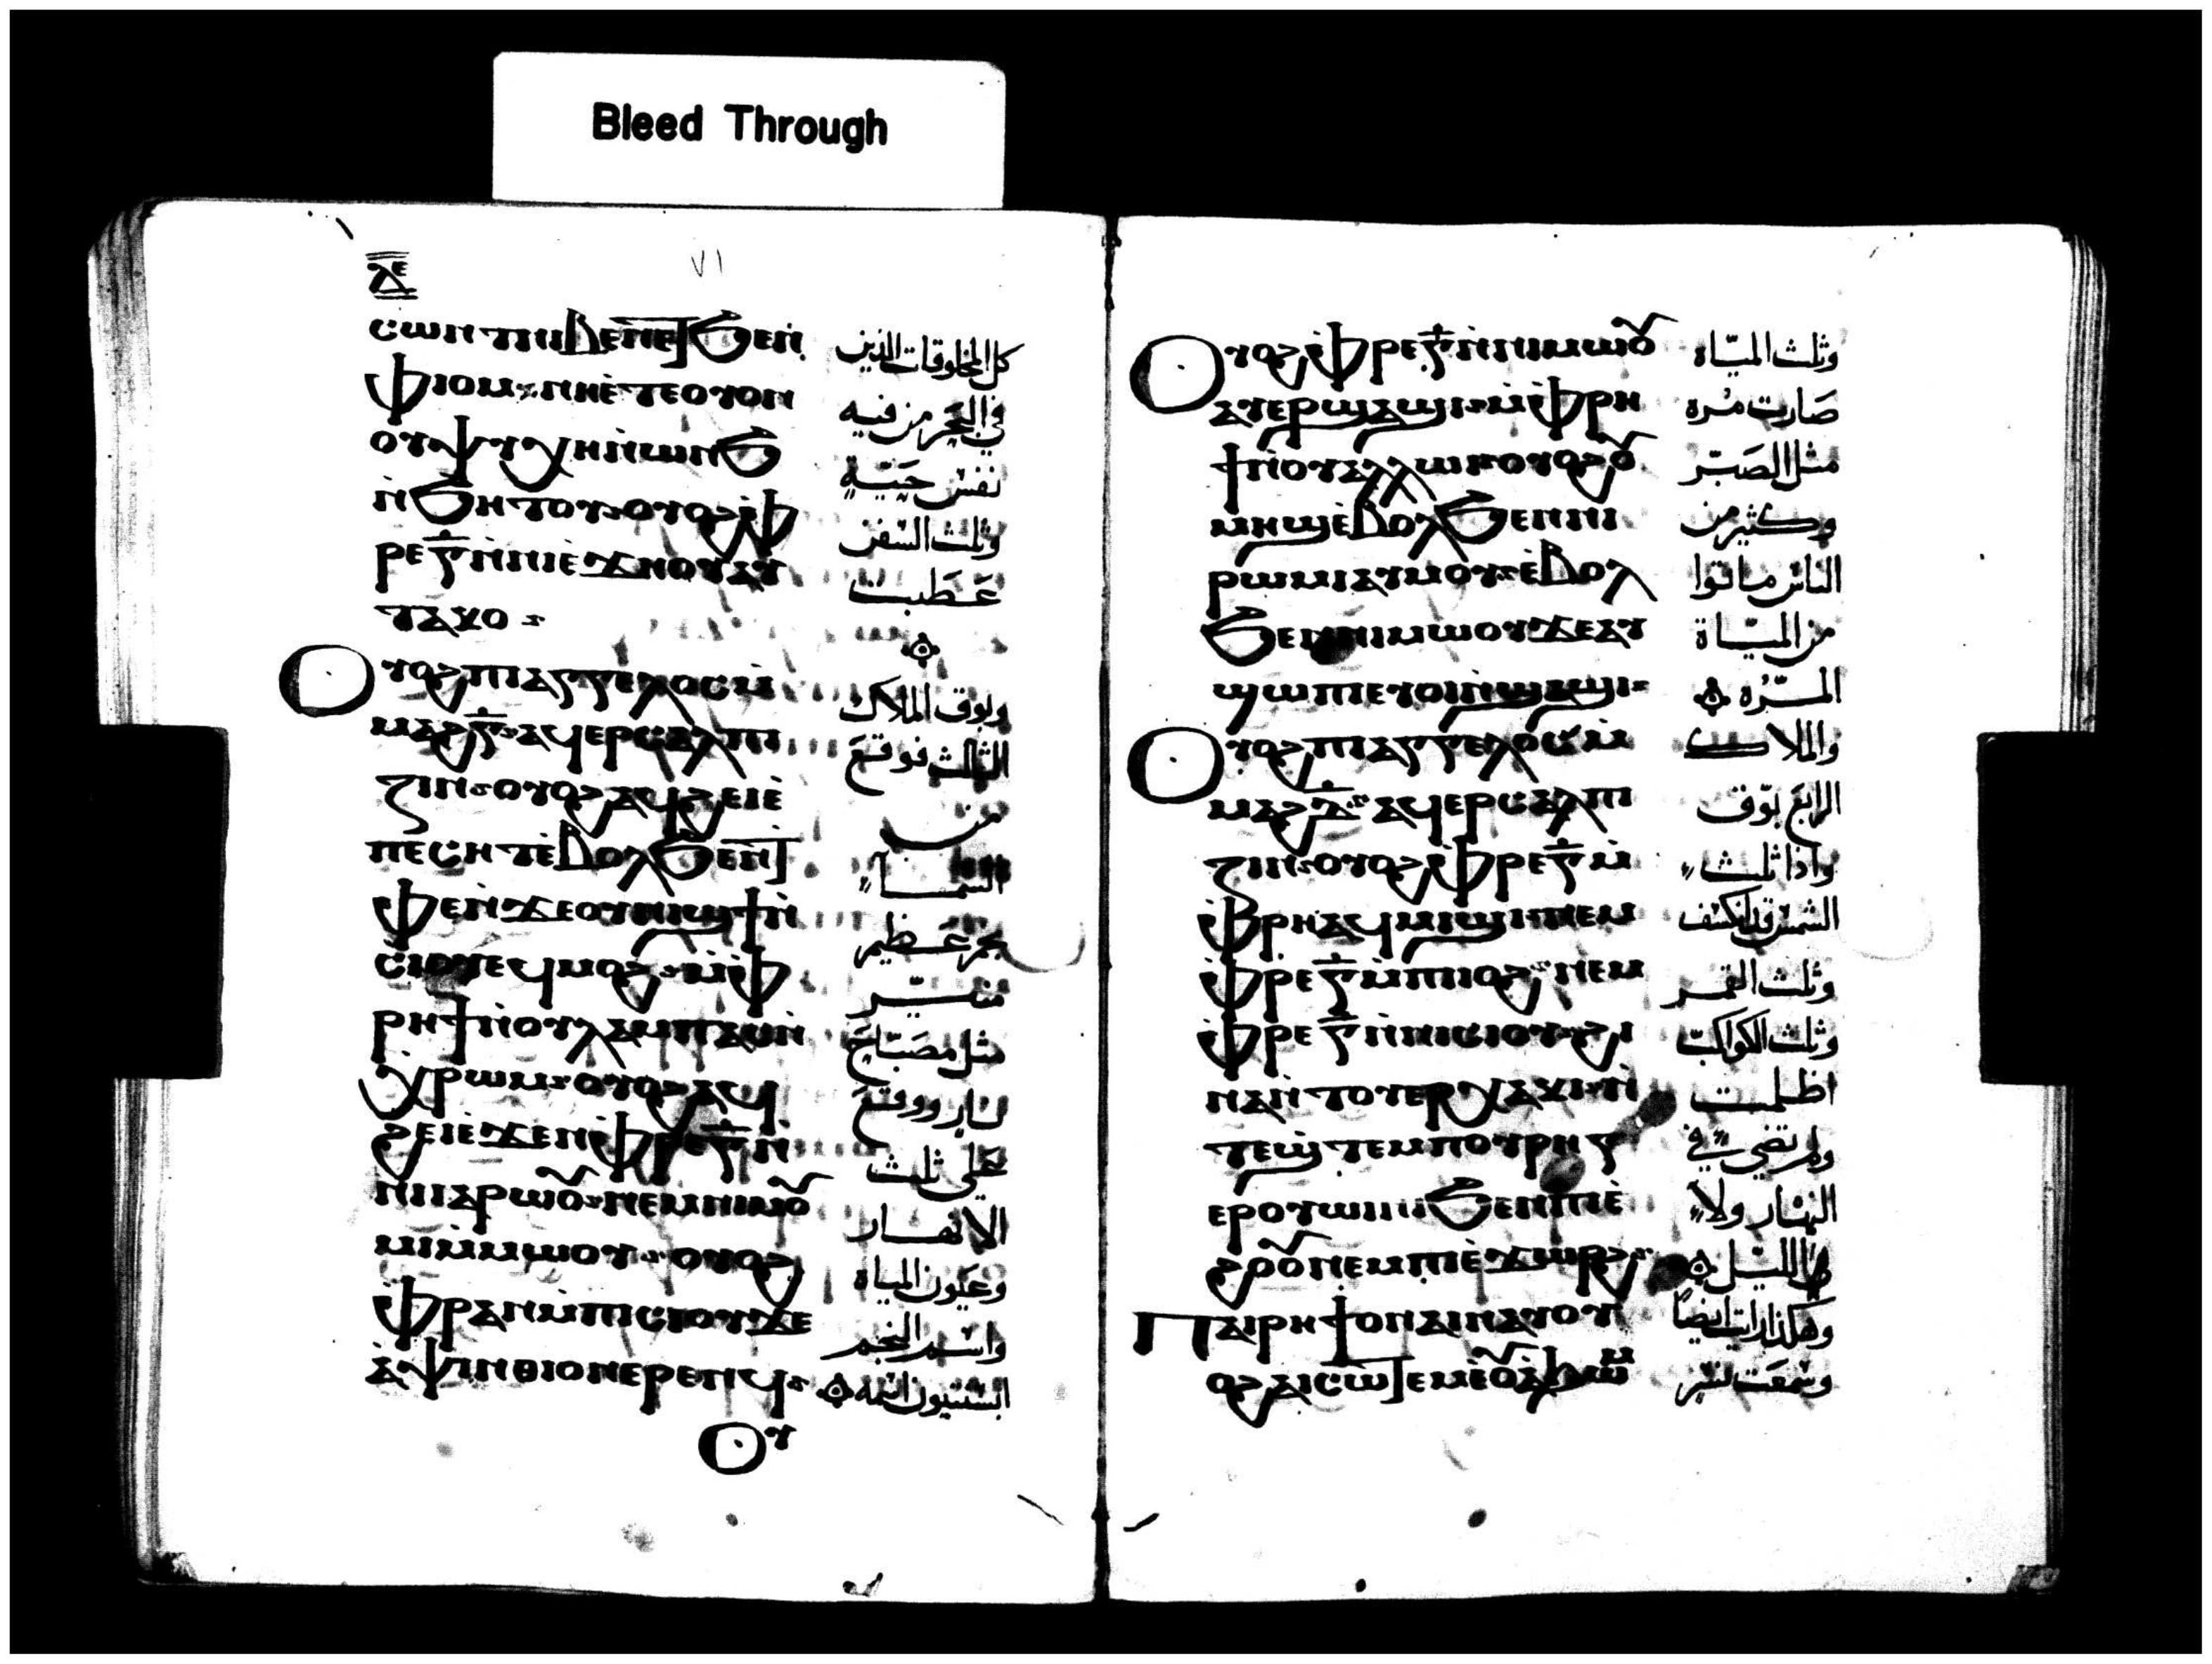 Bleed Through
ⲗⲉ
٧١
ⲥⲱⲛⲧⲛⲓⲃⲉⲛⲉⲧϧⲉⲛ
ⲫⲓⲟⲙ ⲛⲏⲉⲧⲉⲟⲩⲟⲛ
ⲟⲩⲯⲩⲭⲏⲛ̀ⲱⲛϧ
ⲛ̀ϧⲏⲧⲟⲩ ⲟⲩⲟϩⲫ
ⲣⲉⲅ̅ⲛ̀ⲛⲓⲉ̀ϫⲏⲟⲩⲁⲩ
ⲧⲁⲕⲟ
ⲟⲩⲟϩⲡⲓⲁⲅⲅⲉⲗⲟⲥⲙ̀
ⲙⲁϩⲅ̅ ⲁϥⲉⲣⲥⲁⲗⲡⲓ
ⲍⲓⲛ ⲟⲩⲟϩⲁϥϩⲉⲓⲉ̀
ⲡⲉⲥⲏⲧⲉ̀ⲃⲟⲗϧⲉⲛⲧ
ⲫⲉⲛ̀ϫⲉⲟⲩⲛⲓϣϯⲛ̀
ⲥⲓⲟⲩⲉϥⲙⲟϩ ⲙ̀ⲫ
ⲣⲏϯⲛ̀ⲟⲩⲗⲁⲙⲡⲁⲥⲛ̀
ⲭⲣⲱⲙ ⲟⲩⲟϩⲁϥ
ϩⲉⲓⲉ̀ϫⲉⲛⲫⲣⲉⲅ̅ⲛ̀
ⲛⲓⲓⲁⲣⲱⲟ̃ ⲛⲉⲙⲛⲓⲙⲟ̃
ⲙⲓⲙ̀ⲙⲱⲟⲩ ⲟⲩⲟϩ
ⲫⲣⲁⲛⲙ̀ⲡⲓⲥⲓⲟⲩϫⲉ
ⲁ̀ⲯⲓⲛⲑⲓⲟⲛⲉⲣⲉⲡϥ
ⲟⲩ
كل المخلوقات الذين
في البحر من فيه
نفس حيية
وثلث السفن
عطبت
وبوق الملاك
الثالث فوقع
من
السماء
نجم عظيم
منير
مثل مصباح
نار ووقع
على ثلث
الانهار
وعيون المياه
واسم النجم
ابسنتيون اسمه
ⲟⲩⲟϩⲫⲣⲉⲅ̅ⲛ̀ⲛⲓⲙⲱⲟ̃
ⲁⲩⲉⲣϣⲁϣⲓ ⲙ̀ⲫⲣⲏ
ϯⲛ̀ⲟⲩⲁⲗⲗⲱⲏ ⲟⲩⲟϩⲟ̃
ⲙⲏϣⲉ̀ⲃⲟⲗϧⲉⲛⲛⲓ
ⲣⲱⲙⲓⲁⲩⲙⲟⲩ ⲉ̀ⲃⲟⲗ
ϧⲉⲛⲛⲓⲙⲱⲟⲩϫⲉⲁⲩ
ϣⲱⲡⲓⲉⲩⲟⲓⲛ̀ϣⲁϣⲓ
ⲟⲩⲟϩⲡⲓⲁⲅⲅⲉⲗⲟⲥⲙ̀
ⲙⲁϩⲇ̅ ⲁϥⲉⲣⲥⲁⲗⲡⲓ
ⲍⲓⲛ ⲟⲩⲟϩⲫⲣⲉⲅ̅ⲙ̀
ⲫⲣⲏⲁϥⲙⲓϣⲓ ⲛⲉⲙ
ⲫⲣⲉⲅ̅ⲙ̀ⲡⲓⲓⲟϩ ⲛⲉⲙ
ⲫⲣⲉⲅ̅ⲛ̀ⲛⲓⲥⲓⲟⲩ ϩⲓ
ⲛⲁⲛ̀ⲧⲟⲩⲉⲣⲭⲁⲕⲓ ⲛ̀
ⲧⲉϣⲧⲉⲙⲡⲟⲩⲣⲏ ⲅ̅
ⲉⲣⲟⲩⲱⲓⲛⲓϧⲉⲛⲡⲓⲉ̀
ϩⲟⲟ̃ⲛⲉⲙⲡⲓⲉ̀ϫⲱⲣϩ
ⲡⲁⲓⲣⲏϯⲟⲛⲁⲓⲛⲁⲩⲟⲩ
ⲟϩⲁⲓⲥⲱⲧⲉⲙⲉ̀ⲟ̃ⲁϧⲱⲙ
وثلث المياه
صارت مره
مثل الصبر
وكثير من
الناس ماتوا
من المياة
المره
والملاك
الرابع بوق
واذا ثلث
الشمس قد انكسف
وثلث القمر
وثلث الكواكب
اظلمت
ولم تضي في
النهار ولا
الليل
وهكذا رايت ايضا
وسمعت نسر